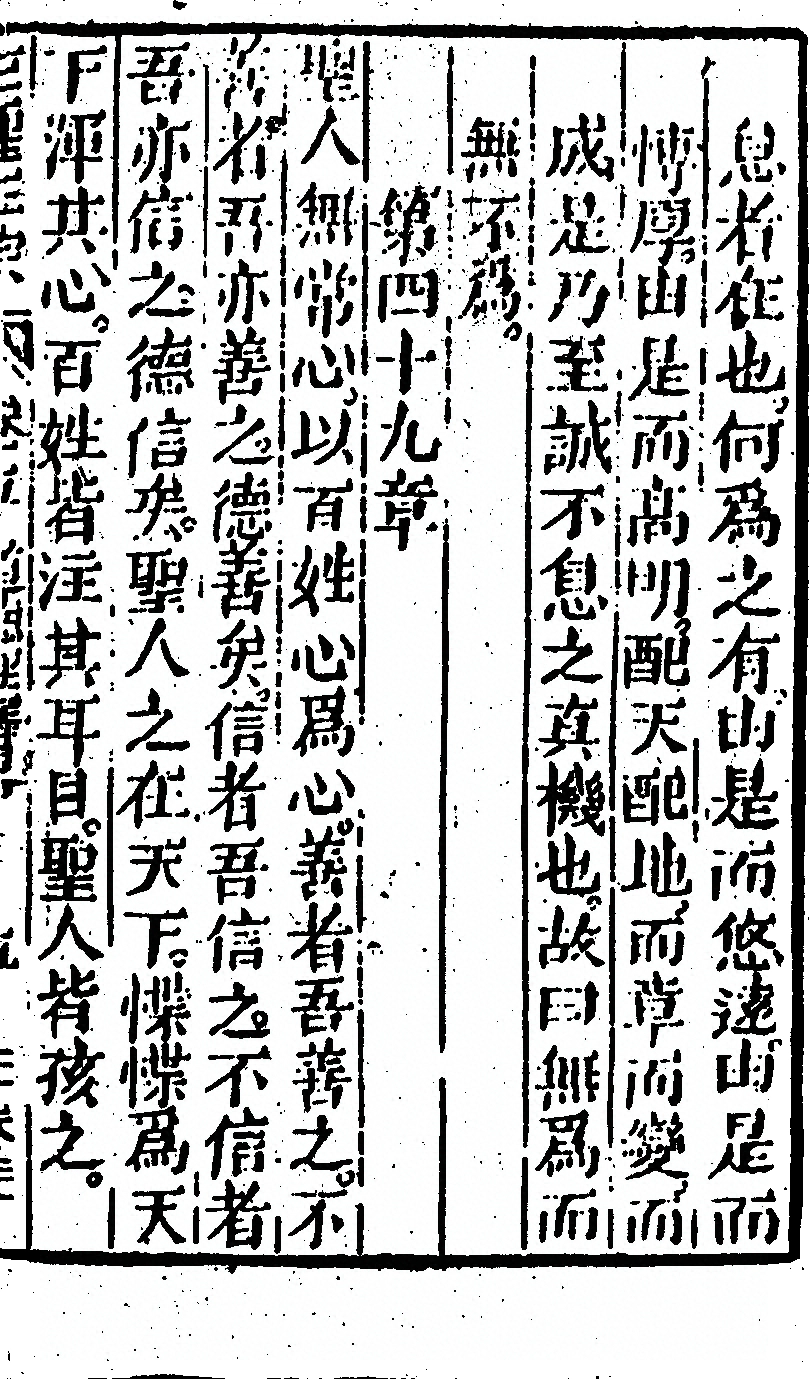 息者在也何爲之有由是而悠遠由是而
博厚由是而高明配天配地而章而變而
成是乃至誠不息之真機也故曰無爲而
無不爲
第四十九章
聖人無常心以百姓心爲心善者吾善之不
善者吾亦善之德善矣信者吾信之不信者
吾亦信之德信矣聖人之在天下惵惵爲天
下渾其心百姓皆注其耳目聖人皆孩之